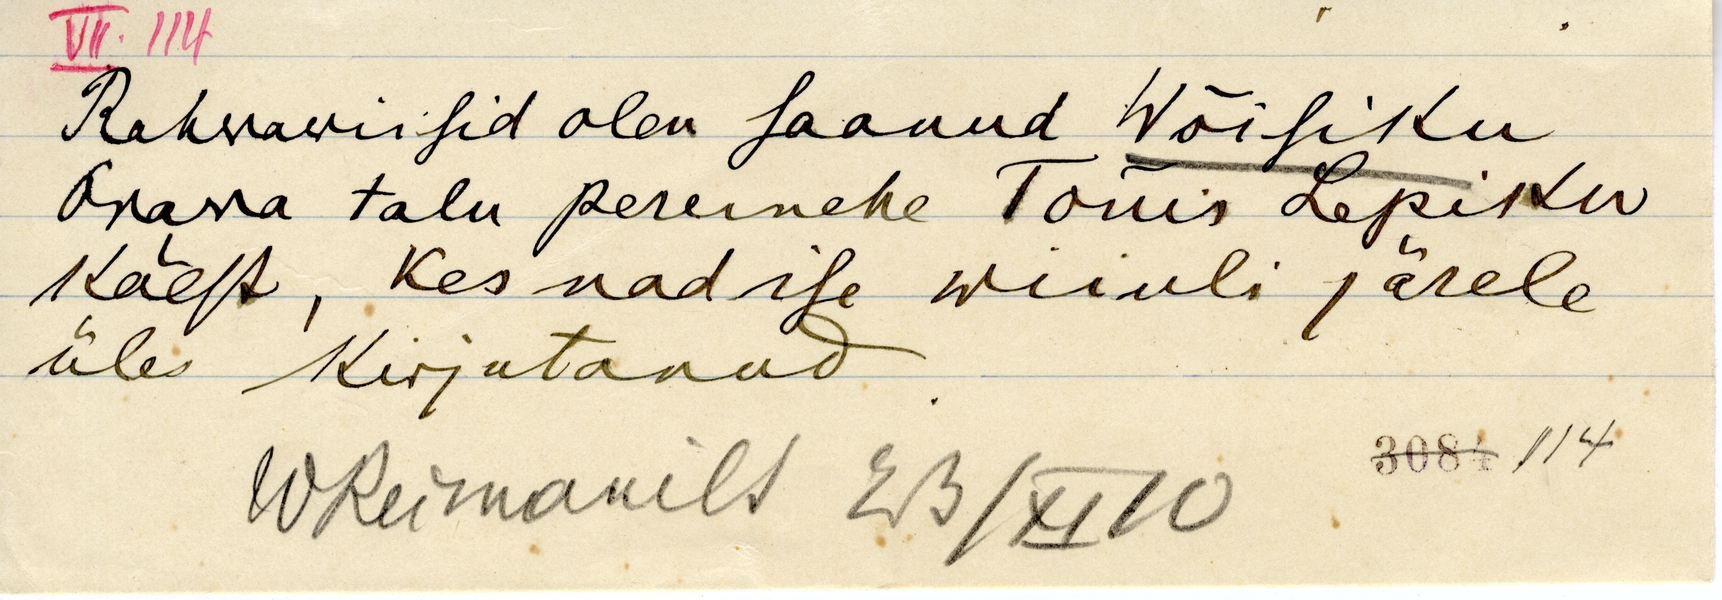 VII. 114
Rahwawiisid olen saanud Wõisiku
Orawa talu peremehe Tõnis Lepiku
käest, kes nad ise wiiuli järele
üles kirjutanud.
3084 114
WReimanilt 23/XI 10